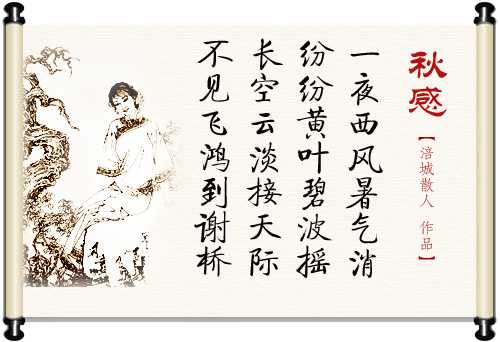 秋感
【涪城散人 作品】
一夜西风暑气消
纷纷黄叶碧波摇
长空云淡接天际
不见飞鸿到谢桥